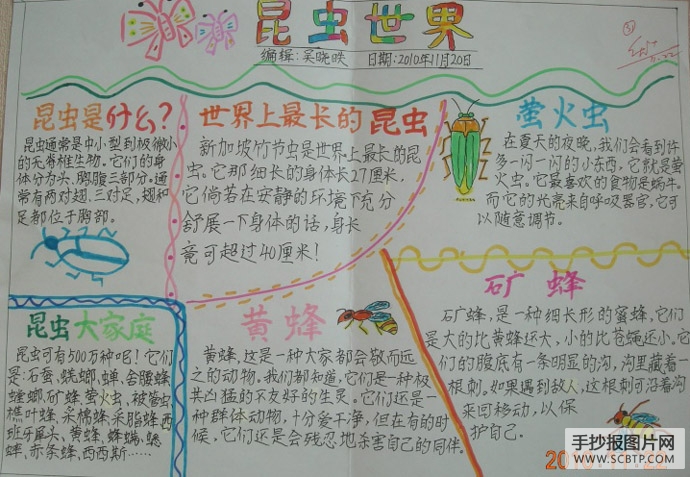 昆虫世界
编辑:吴晓昳 日期:2010年11月20日
昆虫是什么?
昆虫通常是中小型到极微小
的无脊椎生物。它们的身
体分为头.胸腹三部分。通
常有两对翅.三对足,翅和
足都位于胸部。
世界上最长的昆虫
新加坡竹节虫是世界上最长的昆
虫。它那细长的身体长27厘米.
它倘若在安静的环境下充分
舒展一下身体的话,身长
竟可超过40厘米!
萤火虫
在夏天的夜晚,我们会看到许
多一闪一闪的小东西,它就是萤
火虫。它最喜欢的食物是蜗牛。
而它的光亮来自呼吸器官,它可
以随意调节。
昆虫大家庭
昆虫可有500万种吧!它们
是:石蚕、蜣螂、蝉、舍腰蜂、
螳螂、矿蜂、萤火虫、被管虫
樵叶蜂、采棉蜂、采脂蜂、西
班牙犀头、黄蜂、蜂螨、蟋
蟀、赤条蜂、西西斯……
黄蜂
黄蜂,这是一种大家都会敬而远
之的动物。我们都知道,它们是一种极
其凶猛的不友好的生灵。它们还是一
种群体动物,十分爱干净,但在有的时
候,它们还是会残忍地杀害自己的同伴。
矿蜂
矿蜂,是一种细长形的蜜蜂,它们
是大的比黄蜂还大,小的比苍蝇还小。它
们的腹底有一条明显的沟,沟里藏着一
根刺。如果遇到敌人,这根刺可沿着沟
来回移动,以保
护自己.
手抄报图片网
WWW.SCBTP.COM